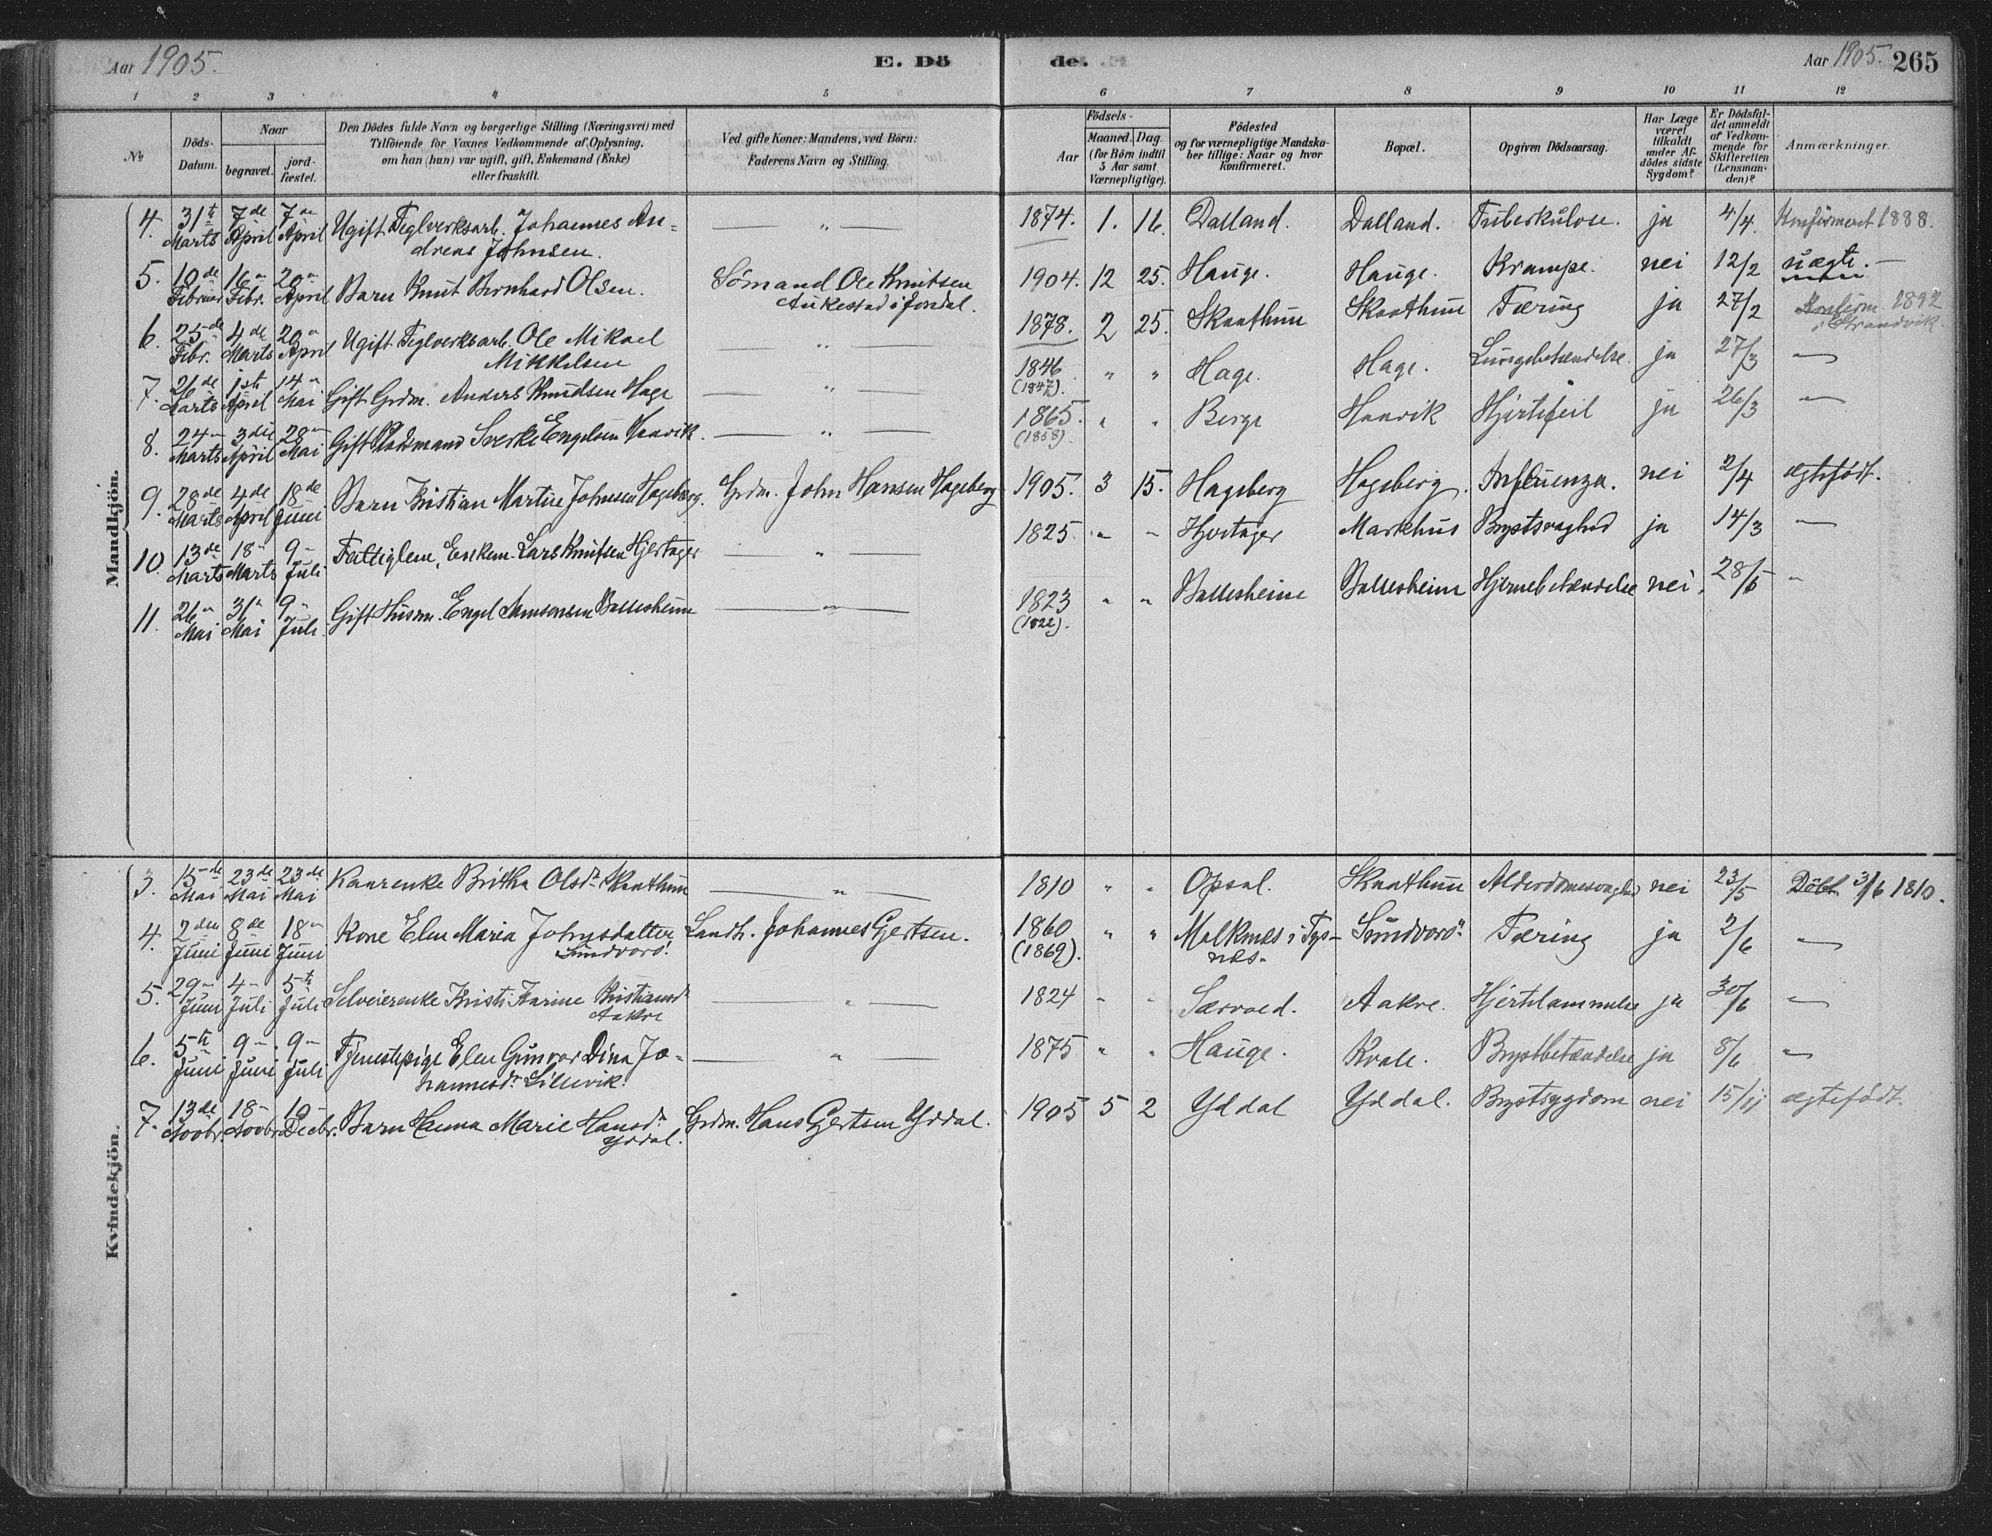 Aar 1905. E. Dö de. Aar 1905. 265
1 2 3 4 5 6 7 8 9 10 11 12
№ Döds-Datum. Naar begravet. jord-fæstet. Den Dödes fulde Navn og borgerlige Stilling (Næringsvei) med Tilföiende for Voxnes Vedkommende af Oplysning, om han (hun) var ugift, gift, Enkemand (Enke) eller fraskilt. Ved gifte Koner: Mandens, ved Börn: Faderens Navn og Stilling. Aar Födsels- Maaned. Dag. (for Børn indtil 5 Aar samt Værnepligtige). Födested og for værnepligtige Mandskaber tillige: Naar og hvor konfirmeret. Bopæl. Opgiven Dödsaarsag. Har Læge været tilkaldt under Afdödes sidste Sygdom? Er Dödsfaldet anmeldt af Vedkommende for Skifteretten (Lensmanden)? Anmærkninger.
Mandkjön.
4. 31te Marts 7de April 7de April Ugift Teglverksarb. Johannes Andreas Johnsen. — " — 1874. 1. 16. Dalland. Dalland. Tuberkulose. ja 4/4. Konfirmeret 1888.
5. 10de Februar 16" Febr. 20" April Barn Knut Bernhard Olsen. Sømand Ole Knutsen Aukestad i Jondal. 1904. 12 25. Hauge. Hauge. Krampe. nei 12/2 uægte. —
6. 25de Febr. 4de Marts 20" April Ugift Teglverksarb. Ole Mikael Mikkelsen — " — 1878. 2 25. Skaathun Skaathun Tæring ja 27/2 Konfirm. 1892 i Strandvik
7. 26de Marts 1ste April 14" Mai Gift Grdm. Anders Knudsen Hage — " — 1846 (1847). " " Hage. Hage. Lungebetændelse ja 27/3 —
8. 24" Marts 3die April 28" Mai Gift Pladsmand Sverke Engelsen Haavik. — " — 1865. (1858). " " Berge Haavik Hjertefeil ja 26/3 —
9. 28de Marts 4de April 18de Juni Barn Kristian Martin Johnsen Hageberg. Grdm. John Hansen Hageberg 1905. 3 15. Hageberg Hageberg. Influenza. nei 2/4 ægtefødt.
10. 13de Marts 18" Marts 9" Juli Fattiglem, Enkem. Lars Knutsen Hjertager — " — 1825. " " Hjertager Markhus Brystsvaghed ja 14/3 —
11. 26" Mai 31" Mai 9" Juli. Gift Husm. Engel Samsonsen Ballesheim — " — 1823 (1822). " " Ballesheim Ballesheim Hjernebetændelse nei. 28/5 "
Kvindekjön.
3. 15de Mai 23de Mai 23de Mai Kaarenke Britha Olsdr. Skaathun — " — 1810 " " Opsal. Skaathun Alderdomssvaghed nei 23/5 Døbt 3/6 1810.
4. 2den Juni 8de Juni 18" Juni Kone Elen Maria Johnsdatter Sundvorö. Landh. Johannes Gjertsen. 1860 (1869). " " Malkenes i Tysnæs. Sundvorö. Tæring ja 2/6 —
5. 29" Juni 4" Juli 5te Juli Selveierenke Kristi Karine Kristiansdr Aakre — " — 1824 " " Sævved. Aakre. Hjertelammelse ja 30/6 —
6. 5te Juni 9" Juni 9" Juli Tjenestepige Elen Gunvor Dina Johannesdr Lillevik. — " — 1875 " " Hauge. Kvale. Brystbetændelse ja 8/6 —
7. 13de Novbr. 18" Novbr. 10" Decbr. Barn Hanna Marie Hansdr. Yddal. Grdm. Hans Gjertsen Yddal. 1905 5 2 Yddal Yddal. Brystsygdom nei 15/11 ægtefødt.